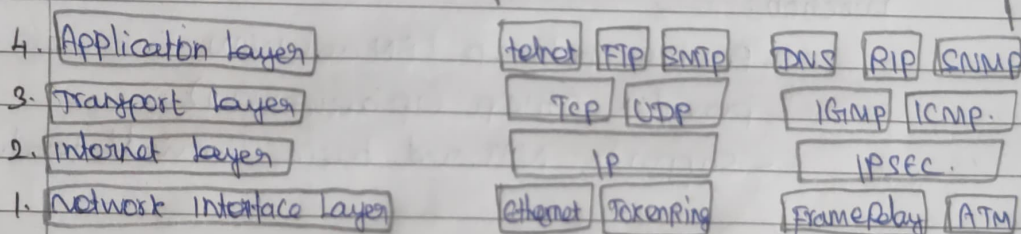 4. Application Layer telnet FTP SMTP DNS RIP SNMP
3. Transport layer TCP UDP IGMP ICMP.
2. internet layer IP IPSEC.
1. Network Interface Layer ethernet TokenRing FrameRelay ATM